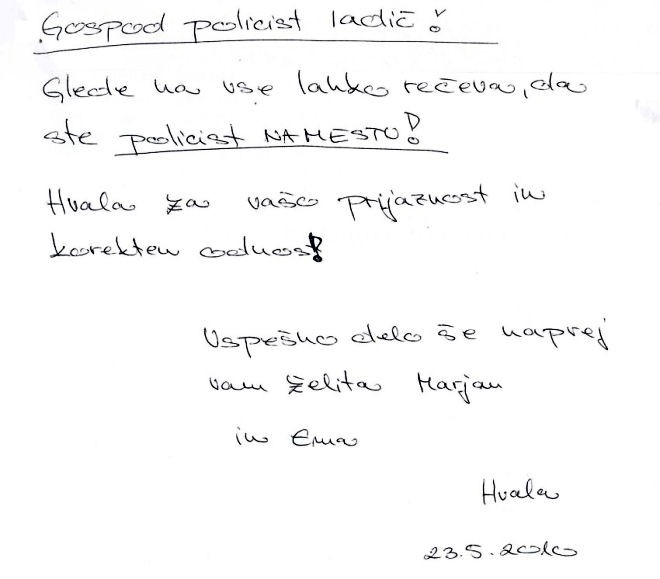 Gospod policist Ladič!
Glede na vse lahko rečeva, da
ste policist NA MESTU!
Hvala za vašo prijaznost in
korekten odnos!
Uspešno delo še naprej
vam želita Marjan
in Ema
Hvala
23.5.2010